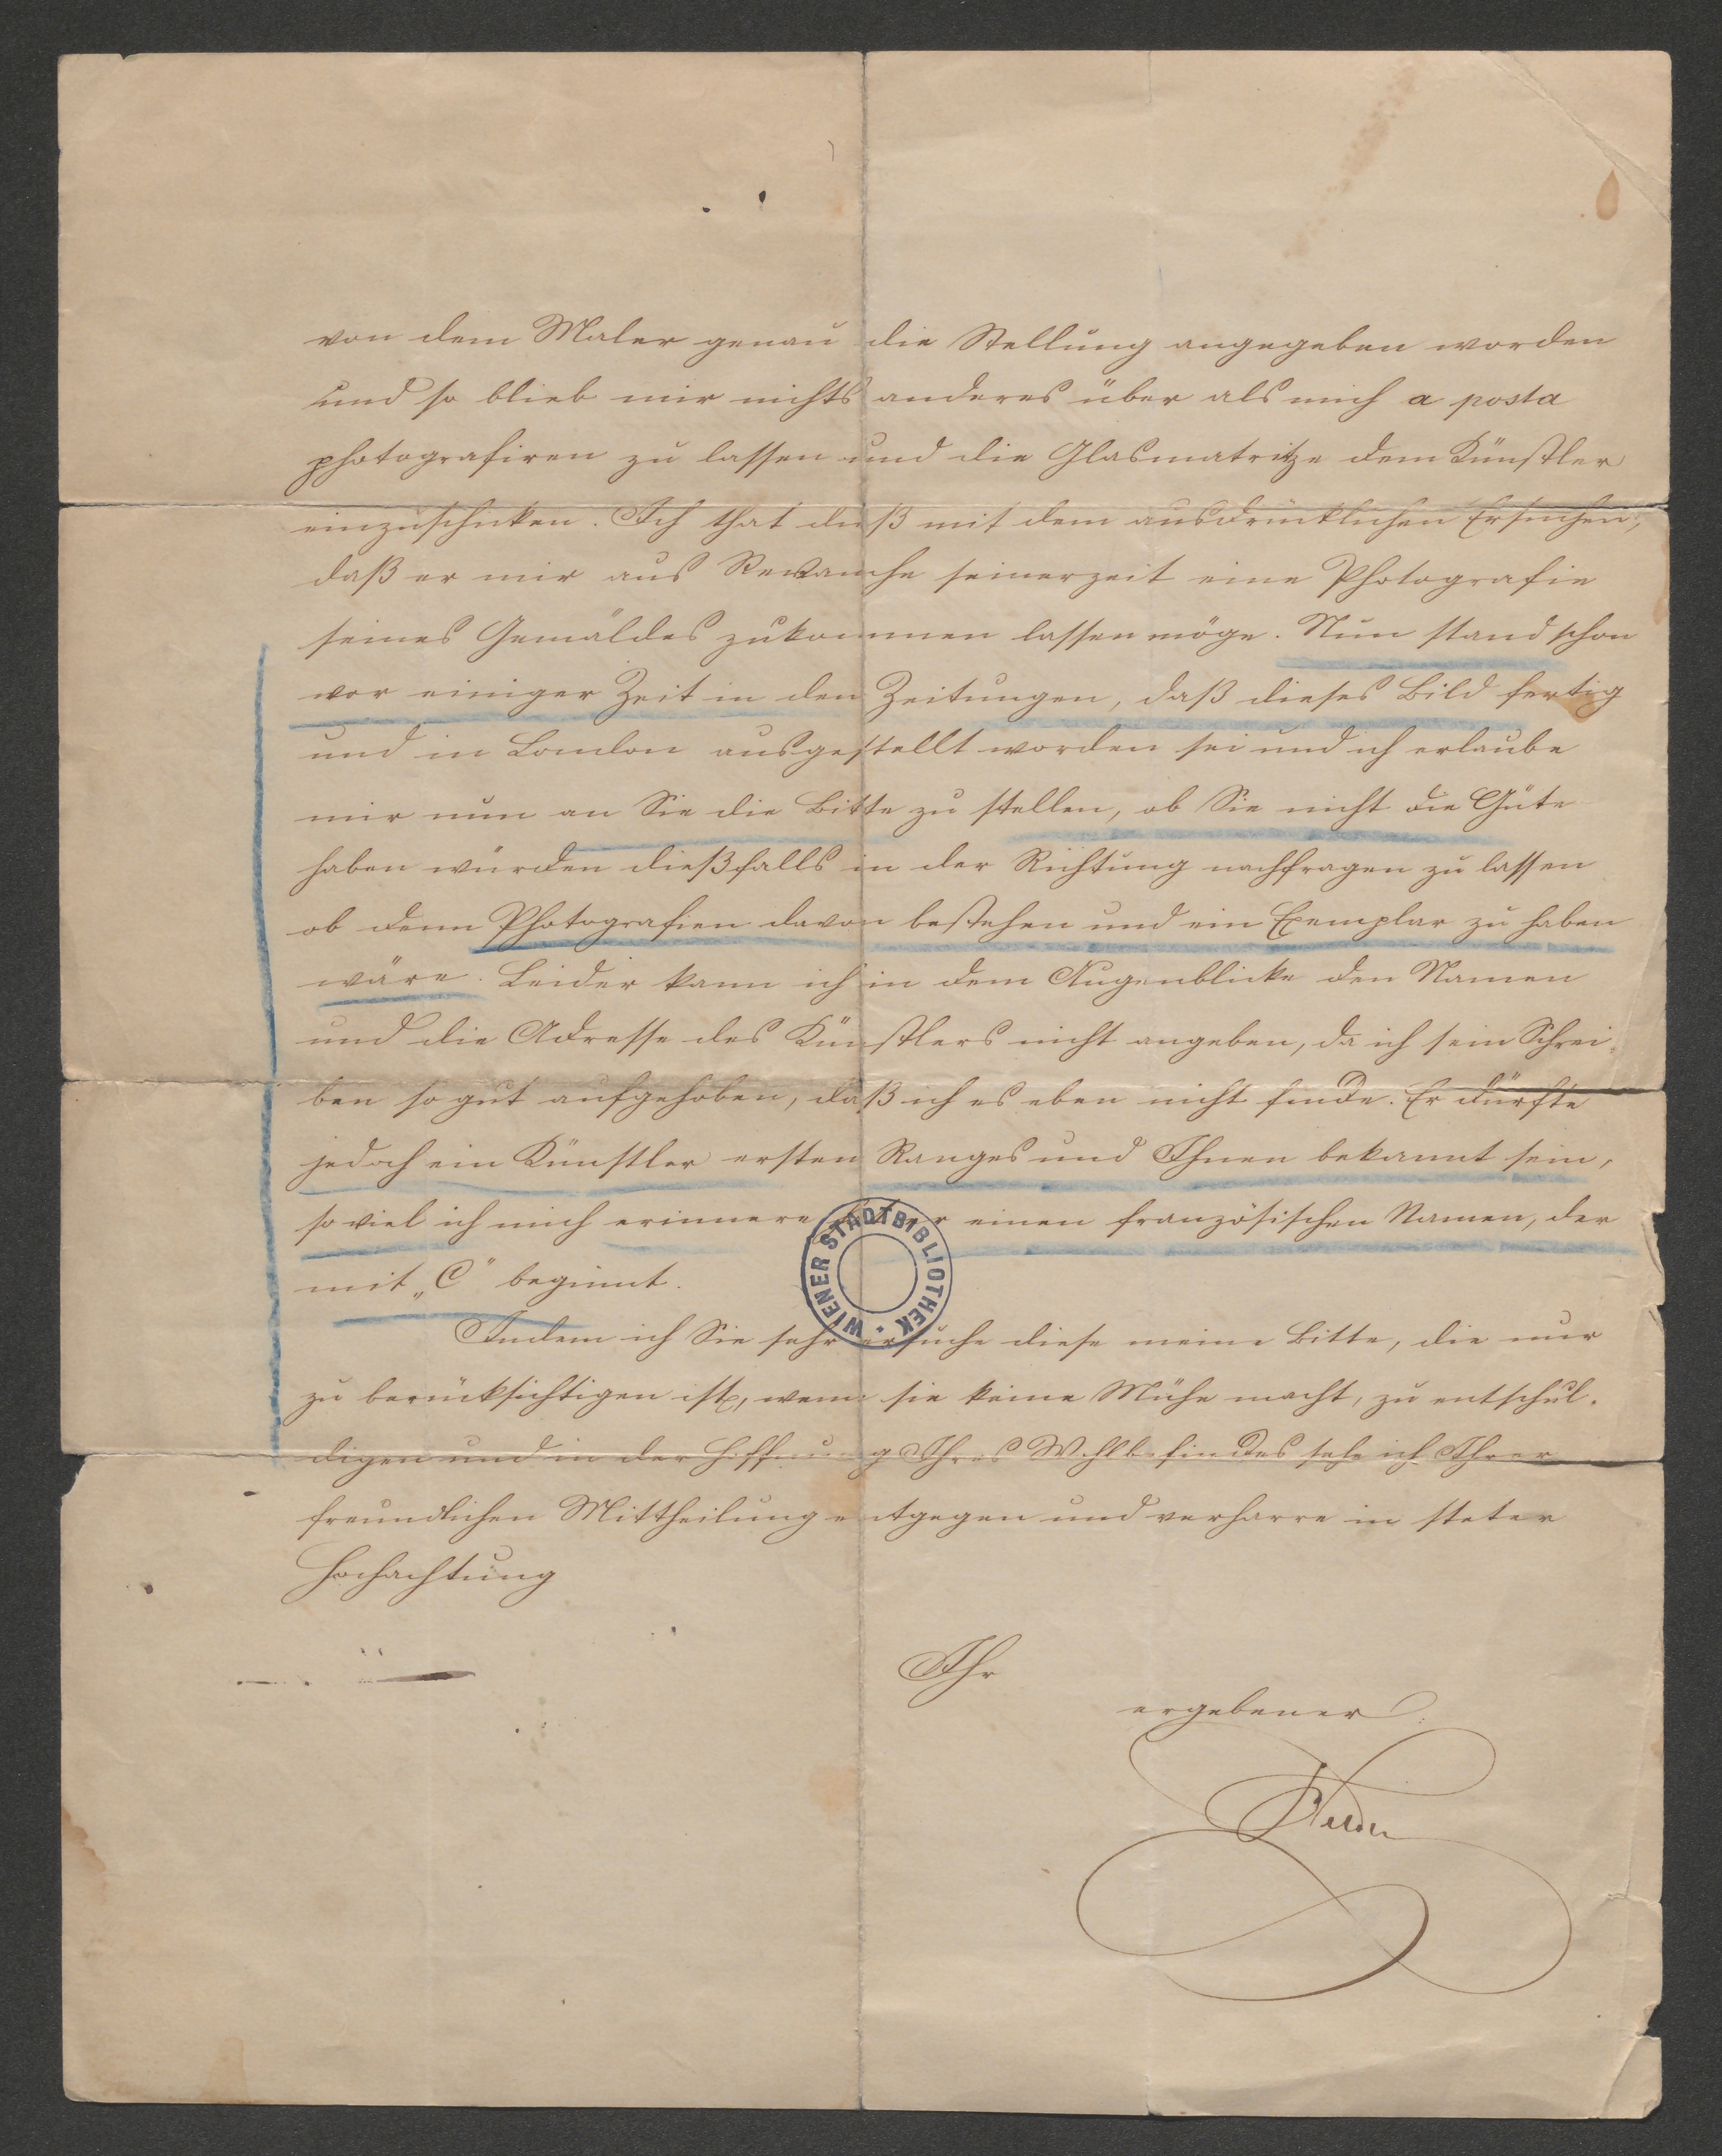 von dem Maler genau die Stellung angegeben worden
und so blieb mir nichts anderes über als mich a posta
photografiren zu lassen und die Glasmatritze dem Künstler
einzuschicken. Ich that dieß mit dem ausdrücklichen Ersuchen,
daß er mir aus Revanche seinerzeit eine Photografie
seines Gemäldes zukommen lassen möge. Nun stand schon
vor einiger Zeit in den Zeitungen, daß dieses Bild fertig
und in London ausgestellt worden sei und ich erlaube
mir nun an Sie die Bitte zu stellen, ob Sie nicht die Güte
haben würden dießfalls in der Richtung nachfragen zu lassen
ob denn Photografien davon bestehen und ein Exemplar zu haben
wäre. Leider kann ich in dem Augenblicke den Namen
und die Adresse des Künstlers nicht angeben, da ich sein Schrei-
ben so gut aufgehoben, daß ich es eben nicht finde. Er dürfte
jedoch ein Künstler ersten Ranges und Ihnen bekannt sein,
so viel ich mich erinnere einen französischen Namen, der
mit „C" beginnt.
WIENER STADTBIBLIOTHEK
Indem ich Sie sehr ersuche diese meine Bitte, die nur
zu berücksichtigen ist, wenn sie keine Mühe macht, zu entschul-
digen und in der Hoffnung Ihres Wohlbefindes sehe ich Ihrer
freundlichen Mittheilung entgegen und verharre in steter
Hochachtung
Ihr
ergebener